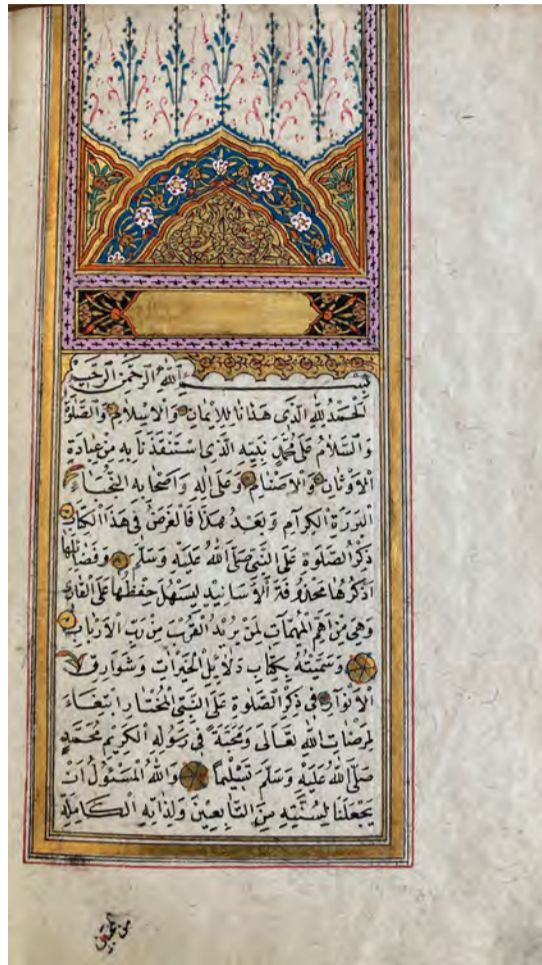 بِسْمِ اللّٰهِ الرَّحْمٰنِ الرَّحِيمِ
اَلْحَمْدُ لِلّٰهِ الَّذِى هَدٰانَا لِلْاِيْمَانِ وَالْاِسْلَامِ وَالصَّلٰوةُ
وَالسَّلَامُ عَلٰى مُحَمَّدٍ نَبِيِّهِ الَّذِى اسْتَنْقَذَنَا بِهِ مِنْ عِبَادَةِ
الْاَوْثَانِ وَالْاَصْنَامِ وَعَلٰى اٰلِهِ وَاَصْحَابِهِ النُّجَبَاءِ
الْبَرَرَةِ الْكِرَامِ وَبَعْدُ هٰذَا فَالْغَرَضُ فِى هٰذَا الْكِتَابِ
ذِكْرُ الصَّلٰوةِ عَلَى النَّبِىِّ صَلَّى اللّٰهُ عَلَيْهِ وَسَلَّمَ وَفَضَائِلُهَا
اَذْكُرُهَا مَحْذُوفَةَ الْاَسَانِيدِ لِيَسْهُلَ حِفْظُهَا عَلَى الْقَارِئِ
وَهِىَ مِنْ اَهَمِّ الْمُهِمَّاتِ لِمَنْ يُرِيدُ الْقُرْبَ مِنْ رَبِّ الْاَرْبَابِ
وَسَمَّيْتُهُ بِكِتَابِ دَلَايِلِ الْخَيْرَاتِ وَشَوَارِقِ
الْاَنْوَارِ فِى ذِكْرِ الصَّلٰوةِ عَلَى النَّبِىِّ الْمُخْتَارِ ابْتِغَاءً
لِمَرْضَاتِ اللّٰهِ تَعَالٰى وَمَحَبَّةً فِى رَسُولِهِ الْكَرِيمِ مُحَمَّدٍ
صَلَّى اللّٰهُ عَلَيْهِ وَسَلَّمَ تَسْلِيمًا وَاللّٰهُ الْمَسْئُولُ اَنْ
يَجْعَلَنَا لِسُنَّتِهِ مِنَ التَّابِعِينَ وَلِذَاتِهِ الْكَامِلَةِ